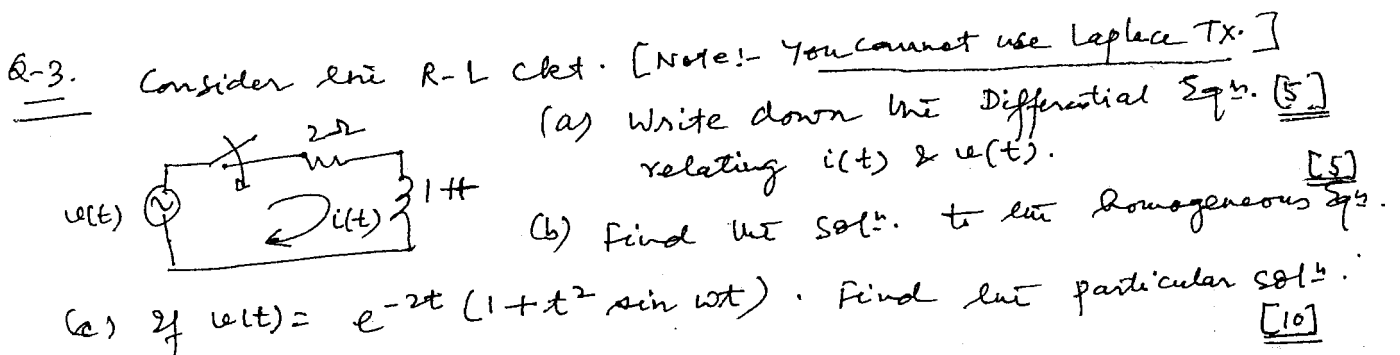 Q-3. Consider the R-L Ckt. [Note:- You cannot use Laplace Tx.]
(a) Write down the Differential Eqn. [5]
relating i(t) & v(t).
2Ω
v(t)
i(t)
1 H
(b) Find the Soln. to the homogeneous Eqn. [5]
(c) If v(t) = e^{-2t} (1 + t² sin ωt). Find the particular soln. [10]